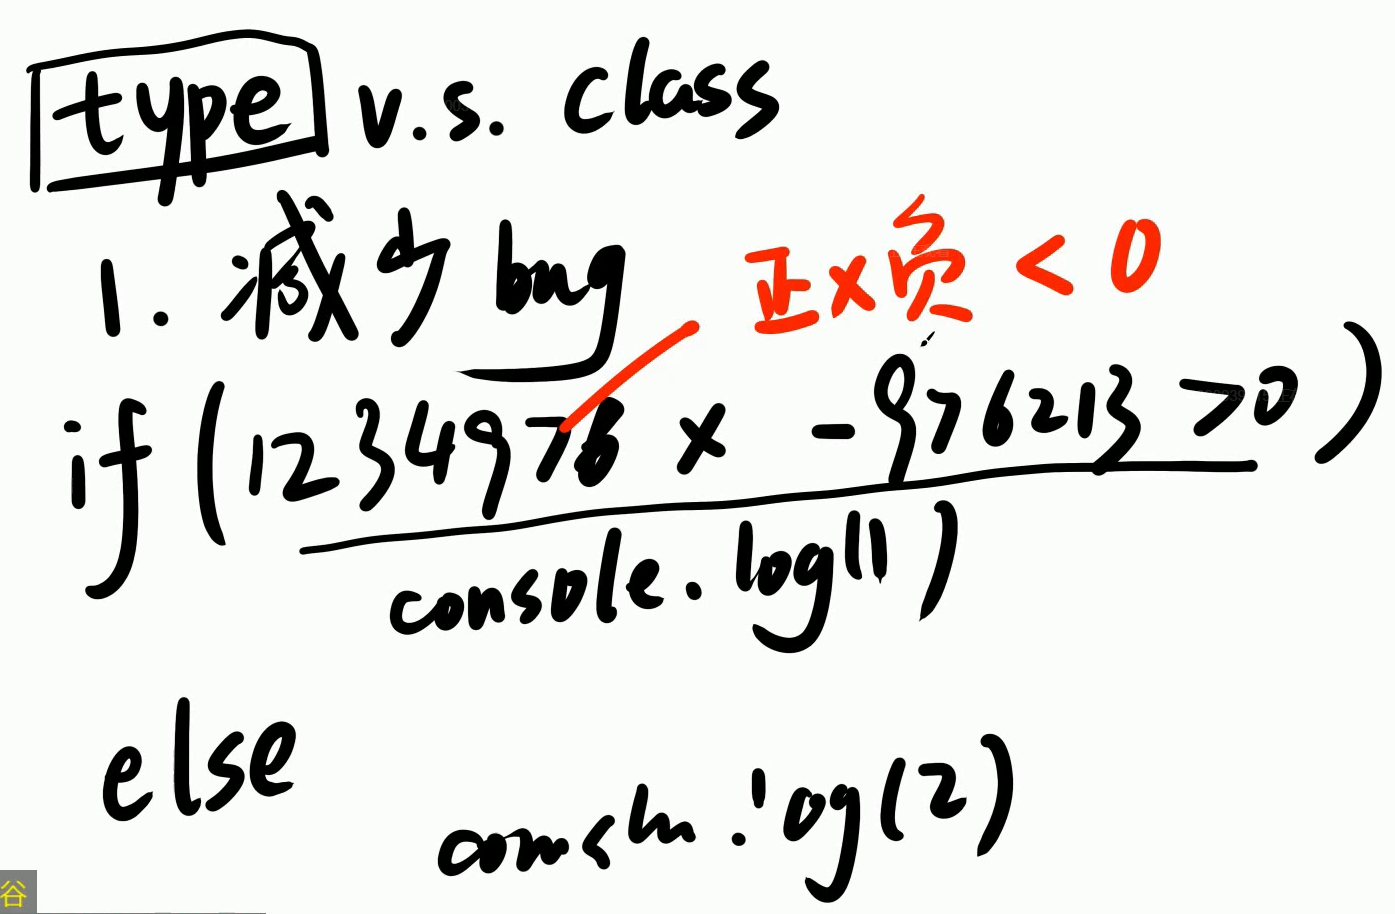 type v.s. class
1. 减少bug
正x负<0
if (1234976 x -976213 >0)
console.log(1)
else
console.log(2)
谷